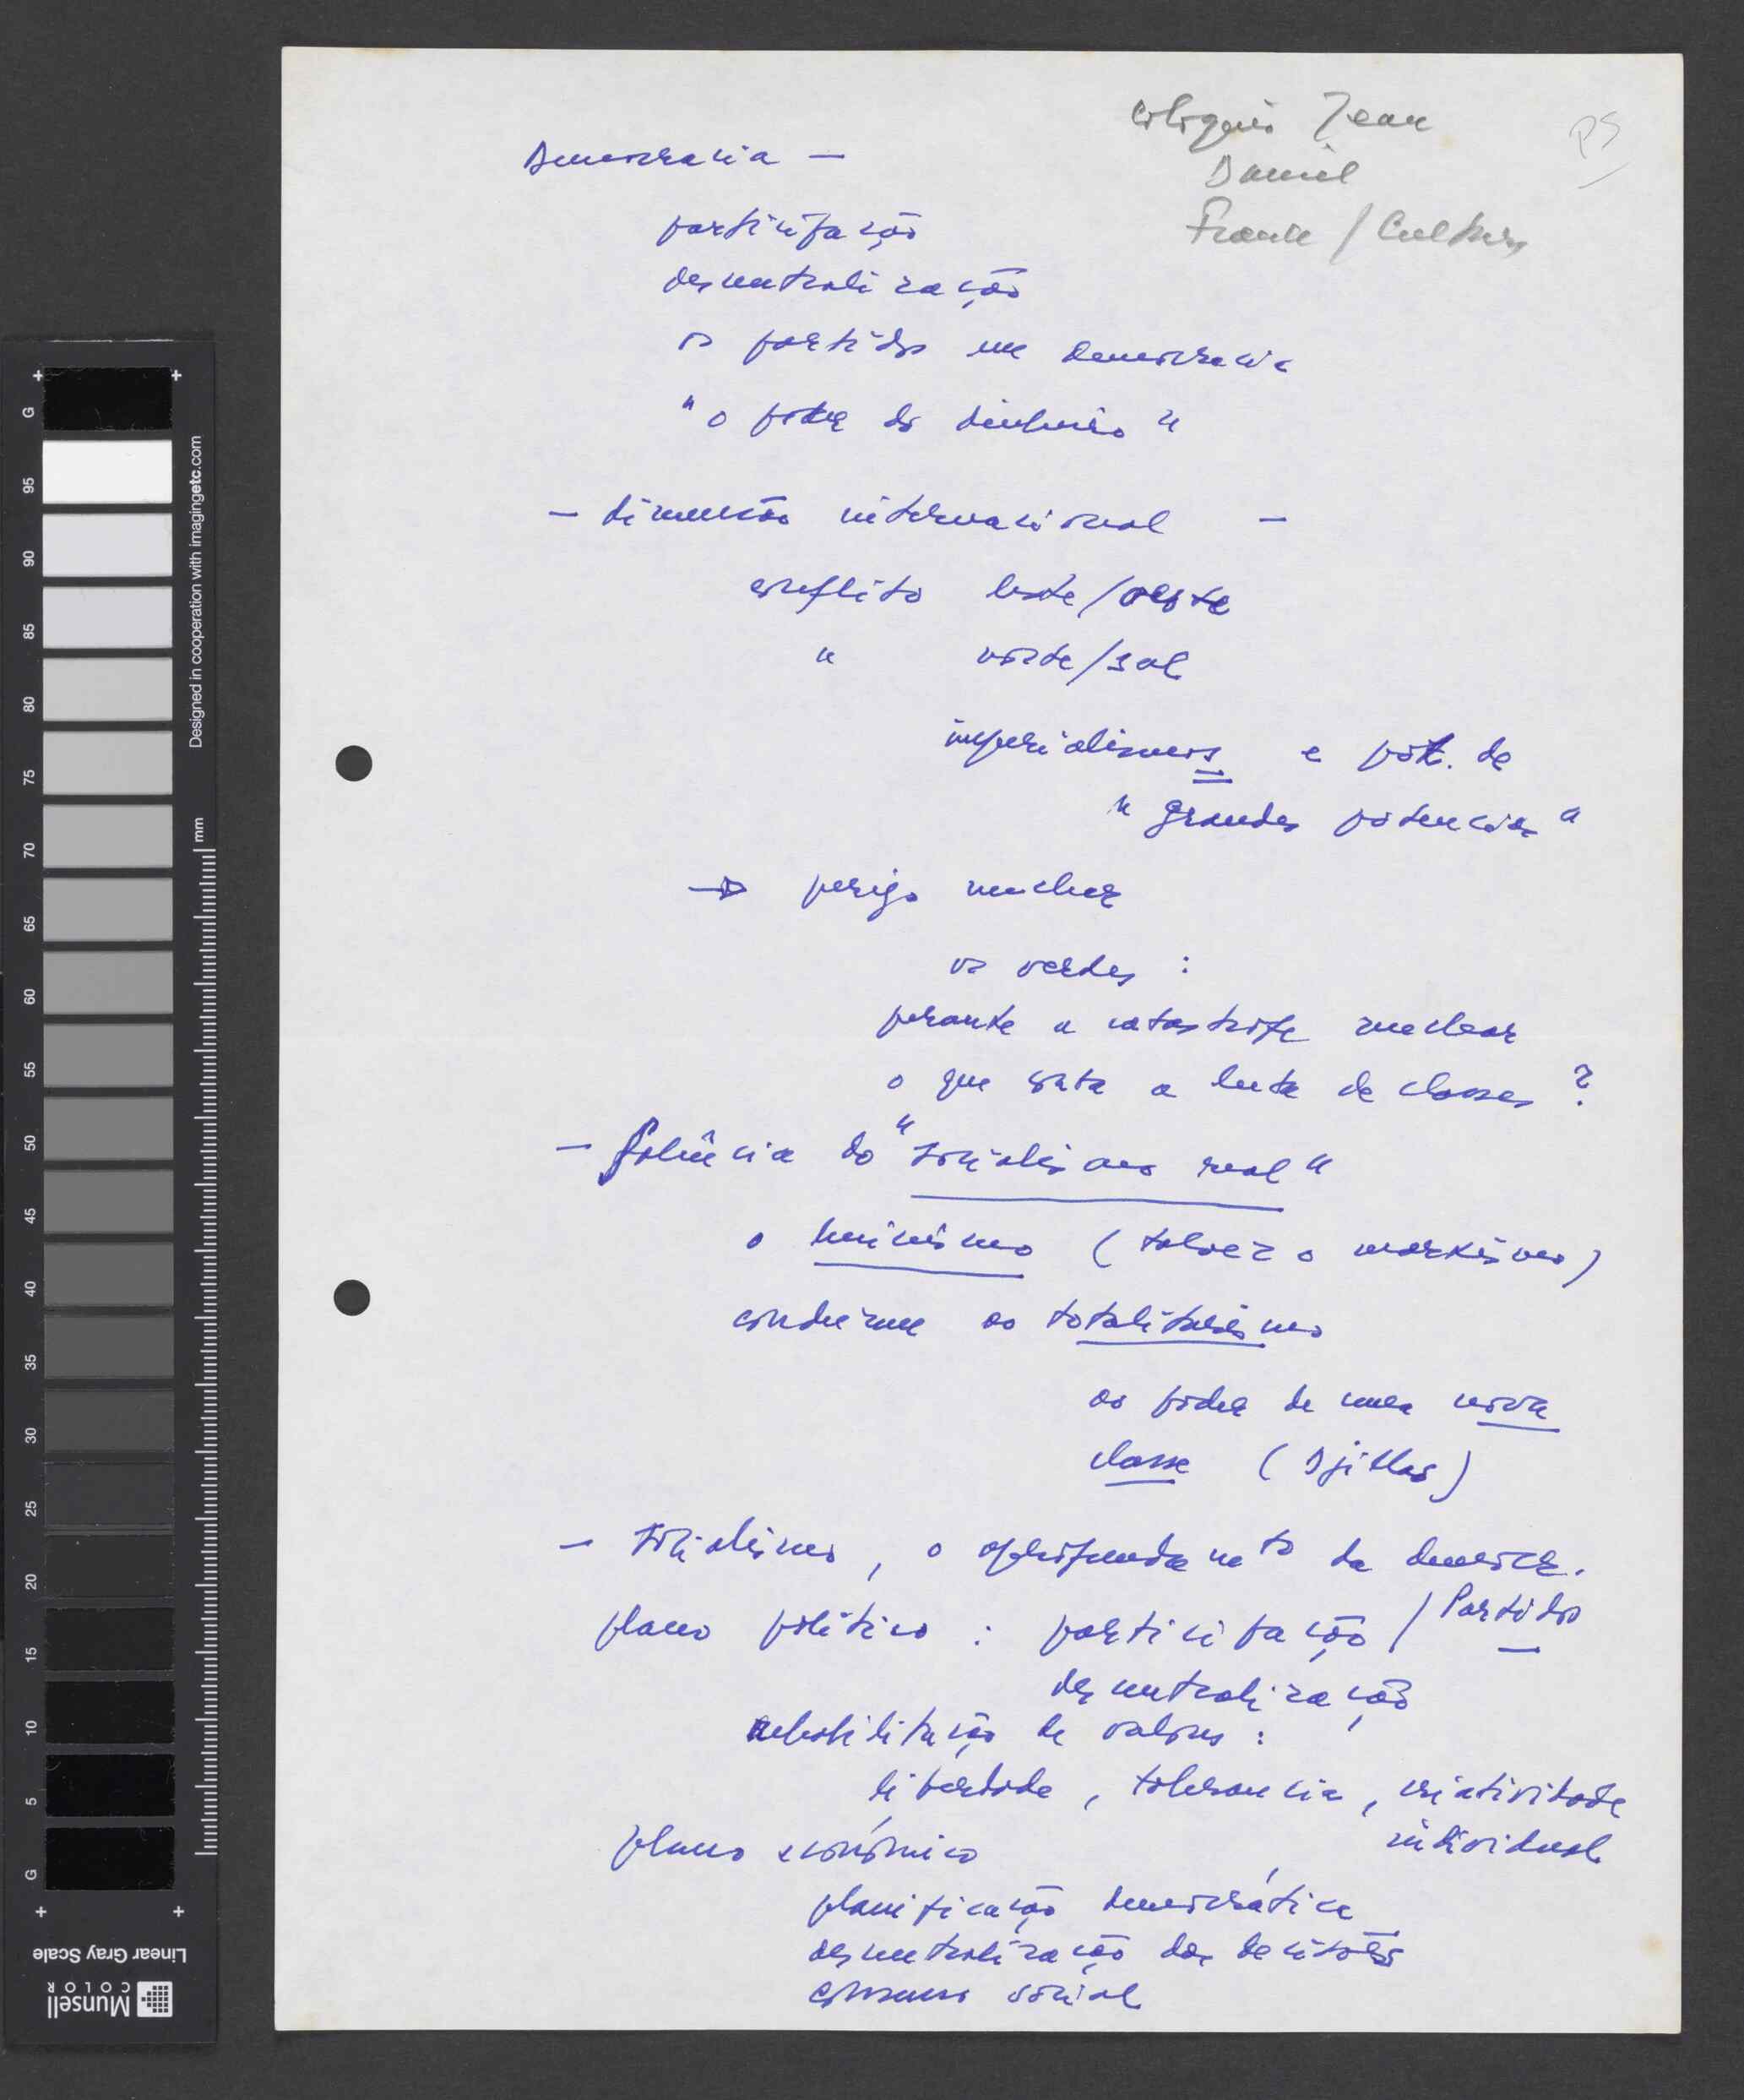 colóquio Jean
Daniel
France / Culture
PS
Democracia —
participação
descentralização
os partidos na democracia
"o poder do dinheiro"
— dimensão internacional —
conflito leste/oeste
" norte/sul
imperialismos e pot. de
"grandes potencias"
→ perigo nuclear
os verdes :
perante a catastrofe nuclear
o que conta a luta de classes ?
— falência do "socialismo real"
o leninismo (talvez o marxismo)
conduzem ao totalitarismo
ao poder de uma nova
classe (Djillas)
— socialismo, o aprofundamto da democr.
plano político : participação / Partidos
descentralização
rehabilitação de valores :
liberdade, tolerancia, criatividade
individual
plano económico
planificação democrática
descentralização das decisões
consumo social
Designed in cooperation with imagingetc.com
mm
G 95 90 85 80 75 70 65 60 55 50 45 40 35 30 25 20 15 10 5 G
Linear Gray Scale
Munsell
COLOR